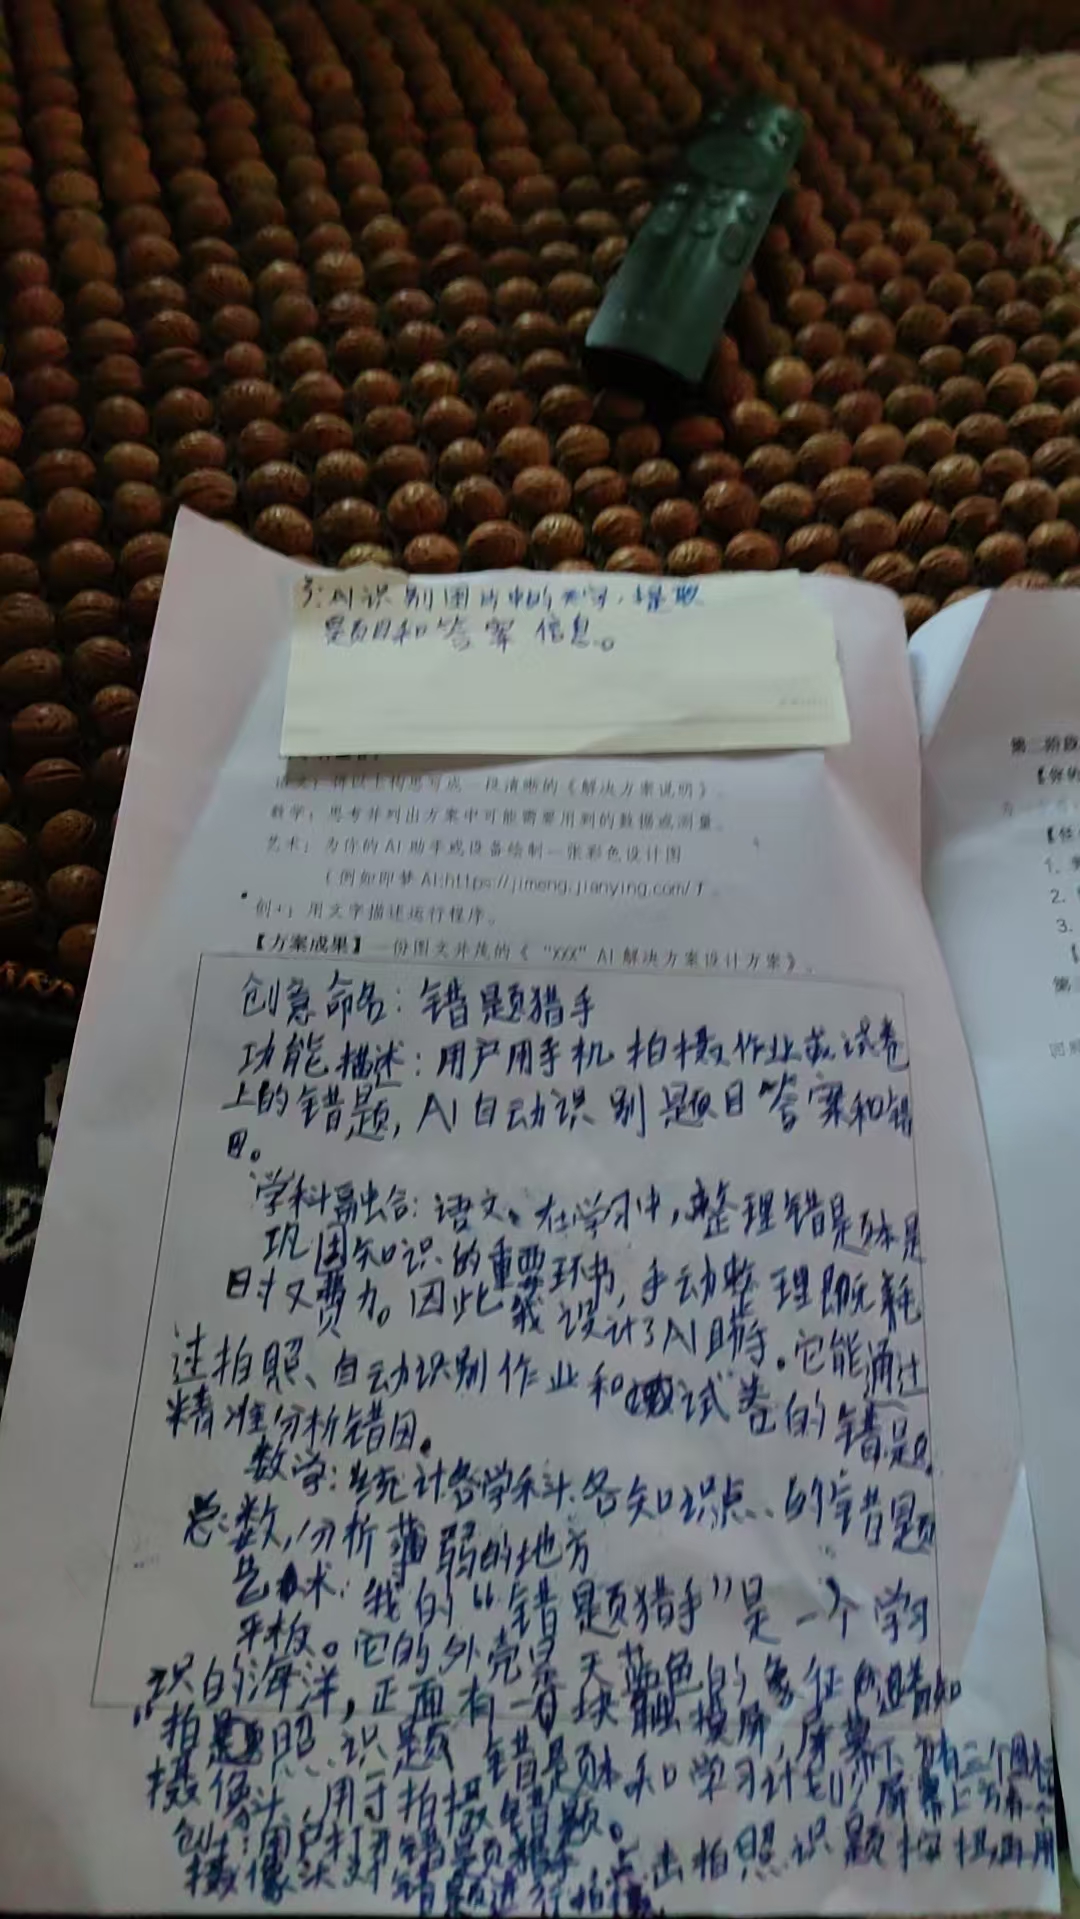 3:AI识别图片中的文字,提取
题目和答案信息。
语文:将以上构思写成一段清晰的《解决方案说明》。
数学:思考并列出方案中可能需要用到的数据或测量。
艺术:为你的AI助手或设备绘制一张彩色设计图
(例如即梦AI:https://jimeng.jianying.com/)。
创+:用文字描述运行程序。
【方案成果】一份图文并茂的《“XXX”AI解决方案设计方案》。
创意命名:错题猎手
功能描述:用户用手机拍摄作业或试卷
上的错题,AI自动识别题目答案和错
因。
学科融合:语文。在学习中,整理错题本是
巩固知识的重要环节,手动整理既耗
时又费力。因此我设计了AI助手。它能通过
过拍照、自动识别作业和试卷的错题
精准分析错因。
数学:统计各学科、各知识点、的错题
总数,分析薄弱的地方
艺术:我的“错题猎手”是一个学习
平板。它的外壳是天蓝色的象征着知
识的海洋,正面有一块触摸屏,屏幕下方有三个图标
“拍照识题 错题本和学习计划”屏幕上方有一个
摄像头,用于拍摄错题。
创+:用户打开错题猎手 点击拍照识题按钮,用
摄像头对错题进行拍摄。
第二阶段
1.
2.
3.
第三